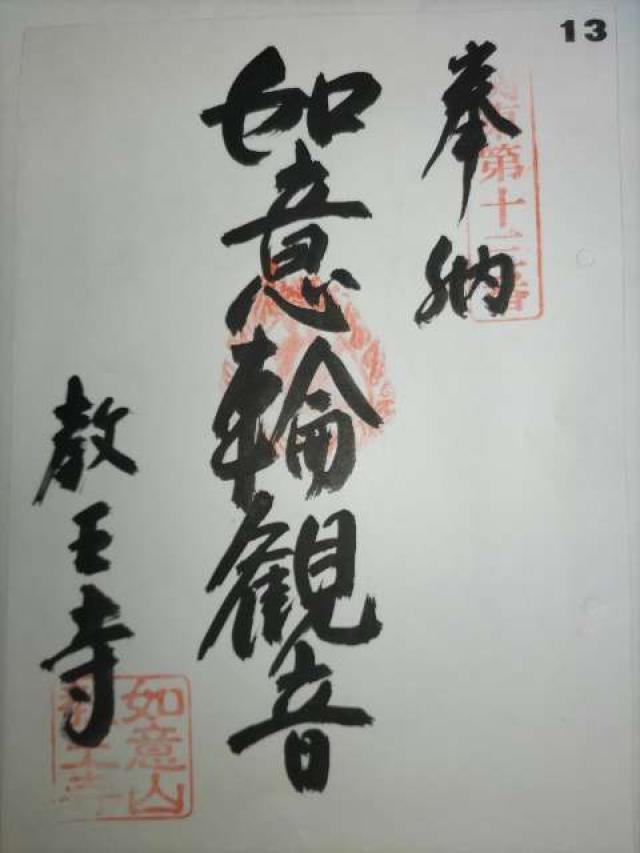 13
第十三番
奉納
如意輪観音
教王寺
如意山
教王寺